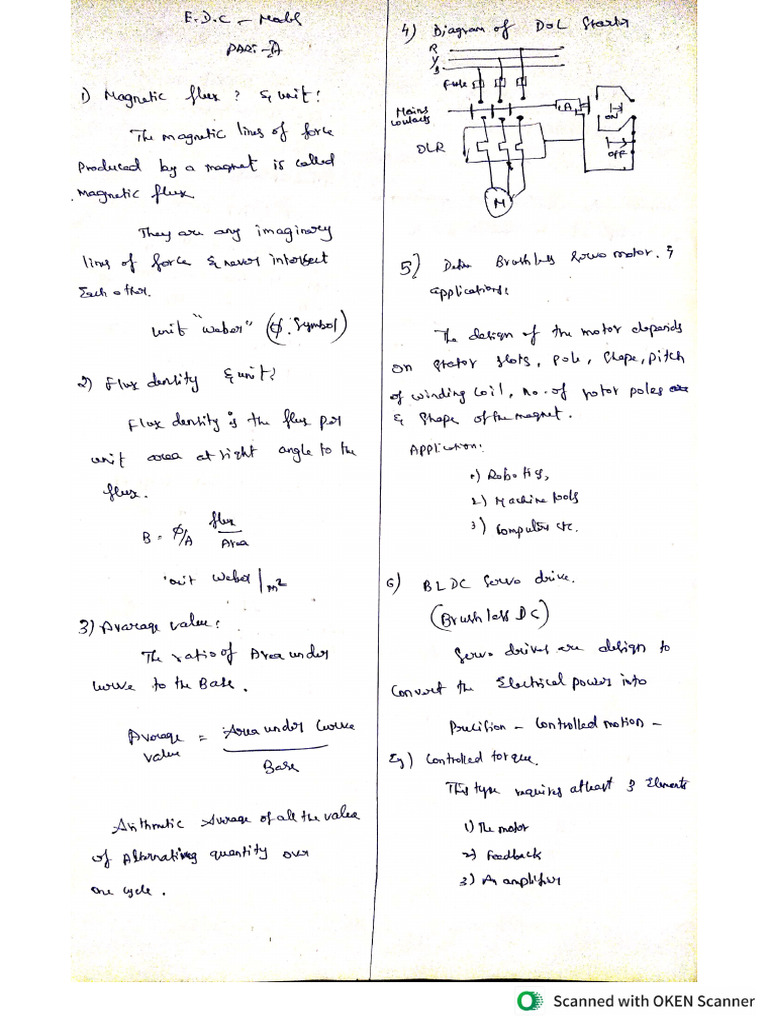 E.D.C - Model
PART-A
1) Magnetic flux ? & unit :
The magnetic lines of force
Produced by a magnet is called
Magnetic flux
They are any imaginary
lines of force & never intersect
Each other.
Unit "Weber" (ϕ. Symbol)
2) Flux density & unit :
Flux density is the flux per
unit area at right angle to the
flux.
B = ϕ/A flux/Area
unit Weber/m²
3) Avarage value :
The ratio of Area under
curve to the Base.
Average value = Area under Curve / Base
Arithmetic Average of all the value
of Alternating quantity over
one cycle.
4) Diagram of DOL Starter
R
Y
B
Fuse
Mains
contacts
A
ON
OLR
OFF
M
5) Define Brushless Servo motor. &
applications:
The design of the motor depends
on stator slots, pole, Shape, pitch
of winding coil, no. of rotor poles
& Shape of the magnet.
Application:
1) Robotics,
2) Machine tools
3) Computer etc.
6) BLDC Servo drive.
(Brushless DC)
Servo drives are design to
Convert the Electrical power into
Precision - Controlled motion -
Eg) Controlled torque.
This type requires atleast 3 Elements
1) The motor
2) Feedback
3) An amplifier
Scanned with OKEN Scanner